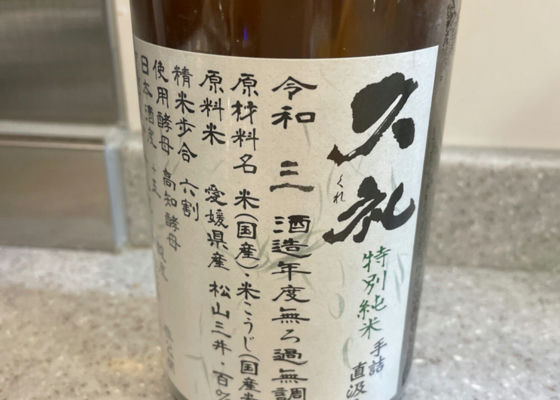 久礼
くれ
特別純米
手詰
直汲
令和三酒造年度無ろ過無調
原材料名 米(国産)・米こうじ(国産米
原料米 愛媛県産 松山三井・百%
精米歩合 六割
使用酵母 高知酵母
日本酒度